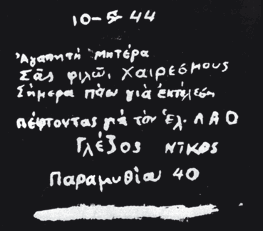 10-5 44
Ἀγαπητή μητέρα
Σᾶς φιλῶ. Χαιρεσμους
Σήμερα πάω γιά ἐκτέλεση
πέφτοντας γιά τόν Ἑλ. ΛΑΟ
Γλέζος ΝΙΚΟς
Παραμυθίας 40